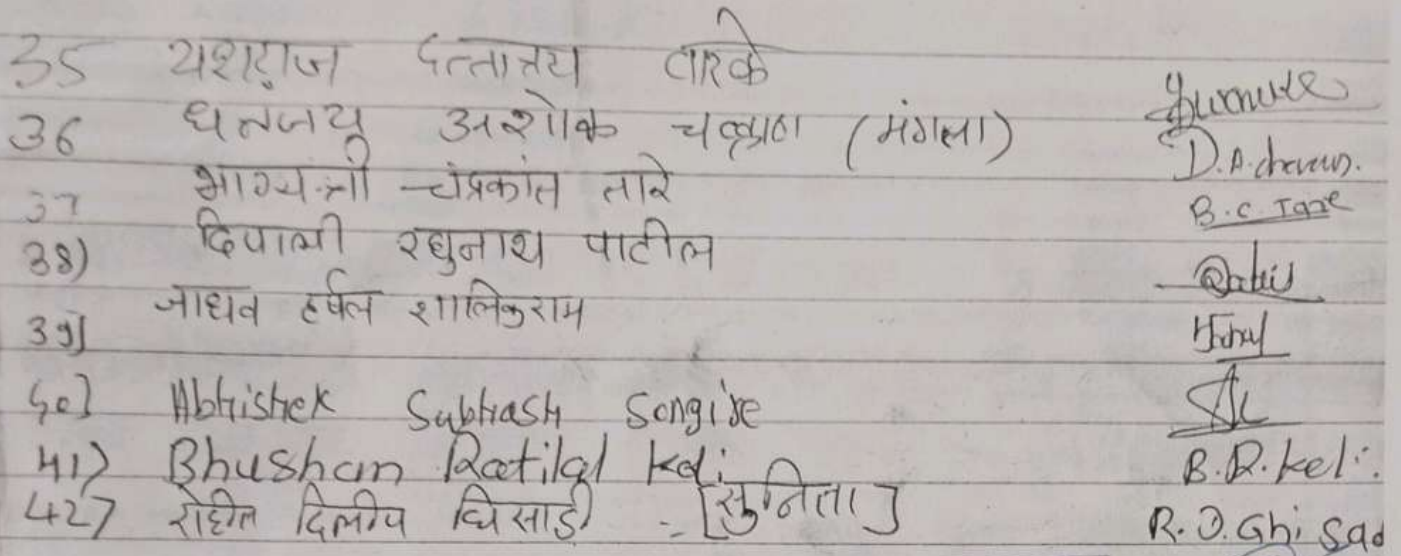 35 यशराज दत्तात्रय वारके
36 धनंजय अशोक चव्हाण (मंगला) D.A.chavan.
37 भाग्यश्री चंद्रकांत तारे B.C.Tare
38) दिपाली रघुनाथ पाटील
39] जाधव हर्षल शालिकराम
40] Abhishek Subhash Songire
41) Bhushan Ratilal Koli B.R.koli.
42) रोहित दिलीप घिसाडी - [सुनिता] R.D.Ghisad